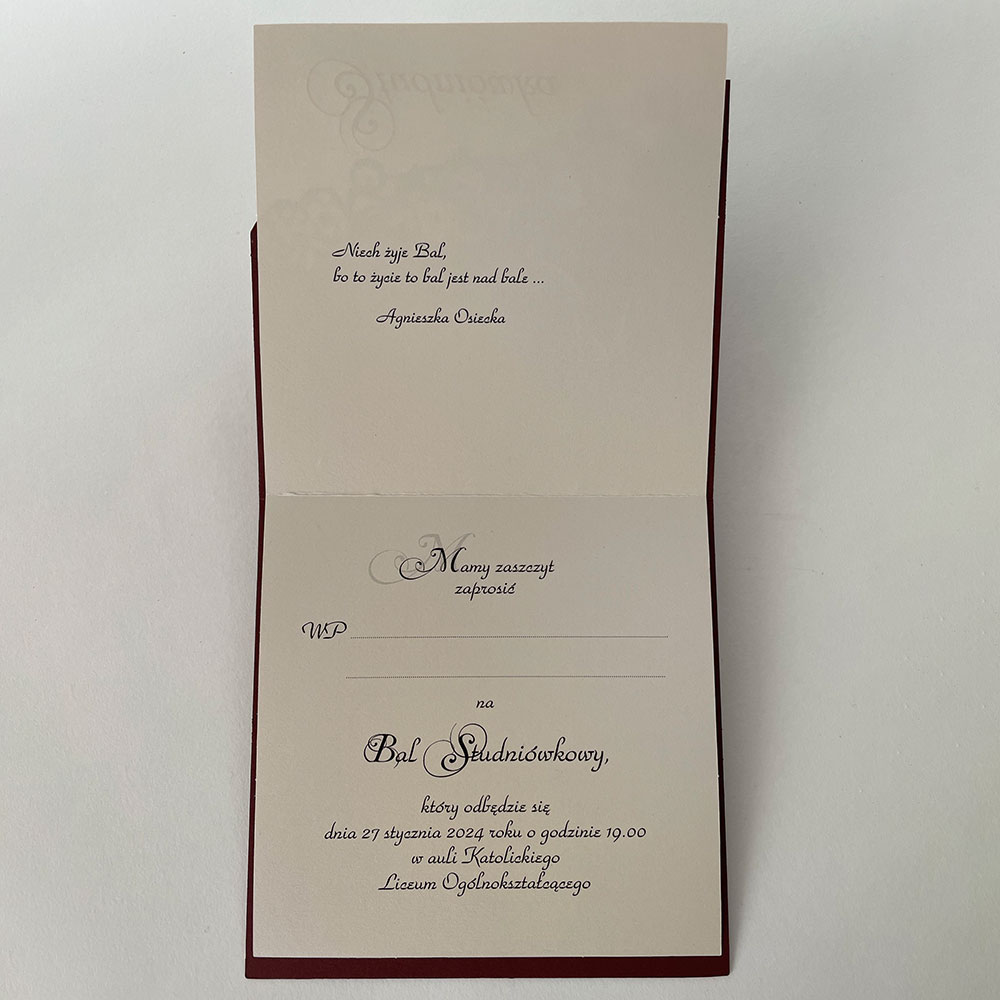 Studniówka
Niech żyje Bal,
bo to życie to bal jest nad bale ...
Agnieszka Osiecka
Mamy zaszczyt
zaprosić
WP
na
Bal Studniówkowy,
który odbędzie się
dnia 27 stycznia 2024 roku o godzinie 19.00
w auli Katolickiego
Liceum Ogólnokształcącego